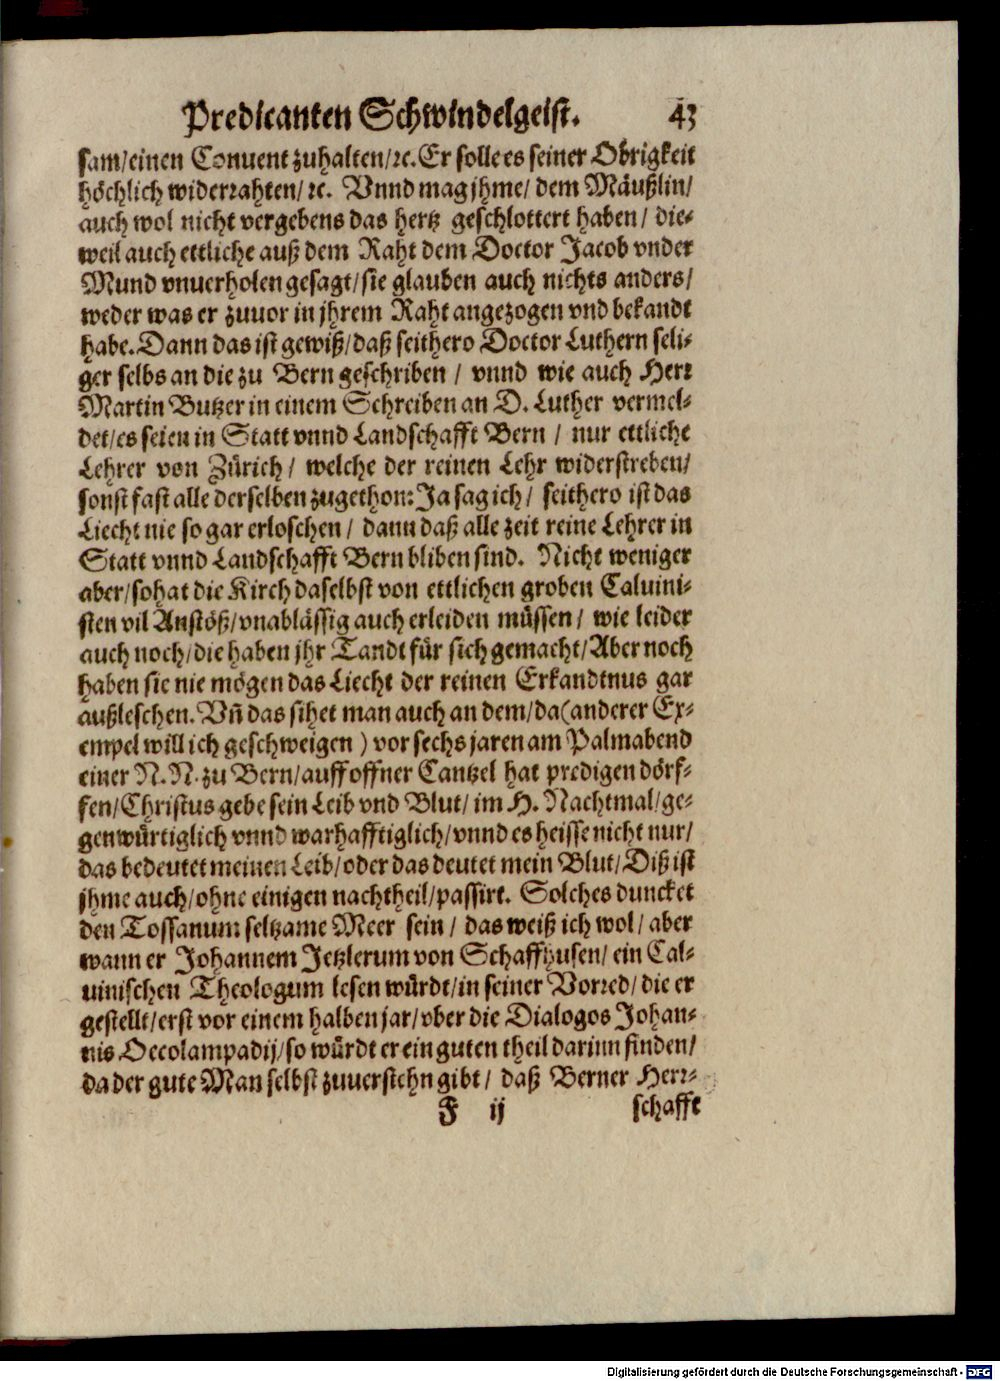 Predicanten Schwindelgeist. 43
sam/einen Conuent zuhalten/ꝛc. Er solle es seiner Obrigkeit
höchlich widerrahten/ ꝛc. Vnnd mag jhme/ dem Mäußlin/
auch wol nicht vergebens das hertz geschlottert haben/ die-
weil auch ettliche auß dem Raht dem Doctor Jacob vnder
Mund vnuerholen gesagt/ sie glauben auch nichts anders/
weder was er zuuor in jhrem Raht angezogen vnd bekandt
habe. Dann das ist gewiß/ daß seithero Doctor Luthern seli-
ger selbs an die zu Bern geschriben / vnnd wie auch Herr
Martin Butzer in einem Schreiben an D. Luther vermel-
det/ es seien in Statt vnnd Landschafft Bern / nur ettliche
Lehrer von Zürich/ welche der reinen Lehr widerstreben/
sonst fast alle derselben zugethon: Ja sag ich/ seithero ist das
Liecht nie so gar erloschen / dann daß alle zeit reine Lehrer in
Statt vnnd Landschafft Bern bliben sind. Nicht weniger
aber/ so hat die Kirch daselbst von ettlichen groben Caluini-
sten vil Anstöß/ vnablässig auch erleiden müssen / wie leider
auch noch/ die haben jhr Tandt für sich gemacht/ Aber noch
haben sie nie mögen das Liecht der reinen Erkandtnus gar
außleschen. Vn̄ das sihet man auch an dem/ da (anderer Ex-
empel will ich geschweigen) vor sechs jaren am Palmabend
einer N. N. zu Bern/ auff offner Cantzel hat predigen dörf-
fen/ Christus gebe sein Leib vnd Blut/ im H. Nachtmal/ ge-
genwürtiglich vnnd warhafftiglich/ vnnd es heisse nicht nur/
das bedeutet meinen Leib/ oder das deutet mein Blut/ Diß ist
jhme auch/ ohne einigen nachtheil/ passirt. Solches duncket
den Tossanum seltzame Meer sein / das weiß ich wol/ aber
wann er Johannem Jetzlerum von Schaffhusen/ ein Cal-
uinischen Theologum lesen würdt/ in seiner Vorred/ die er
gestellt/ erst vor einem halben jar/ vber die Dialogos Johan-
nis Oecolampadij/ so würdt er ein guten theil darinn finden/
da der gute Man selbst zuuerstehn gibt/ daß Berner Herr-
F ij schafft
Digitalisierung gefördert durch die Deutsche Forschungsgemeinschaft - DFG